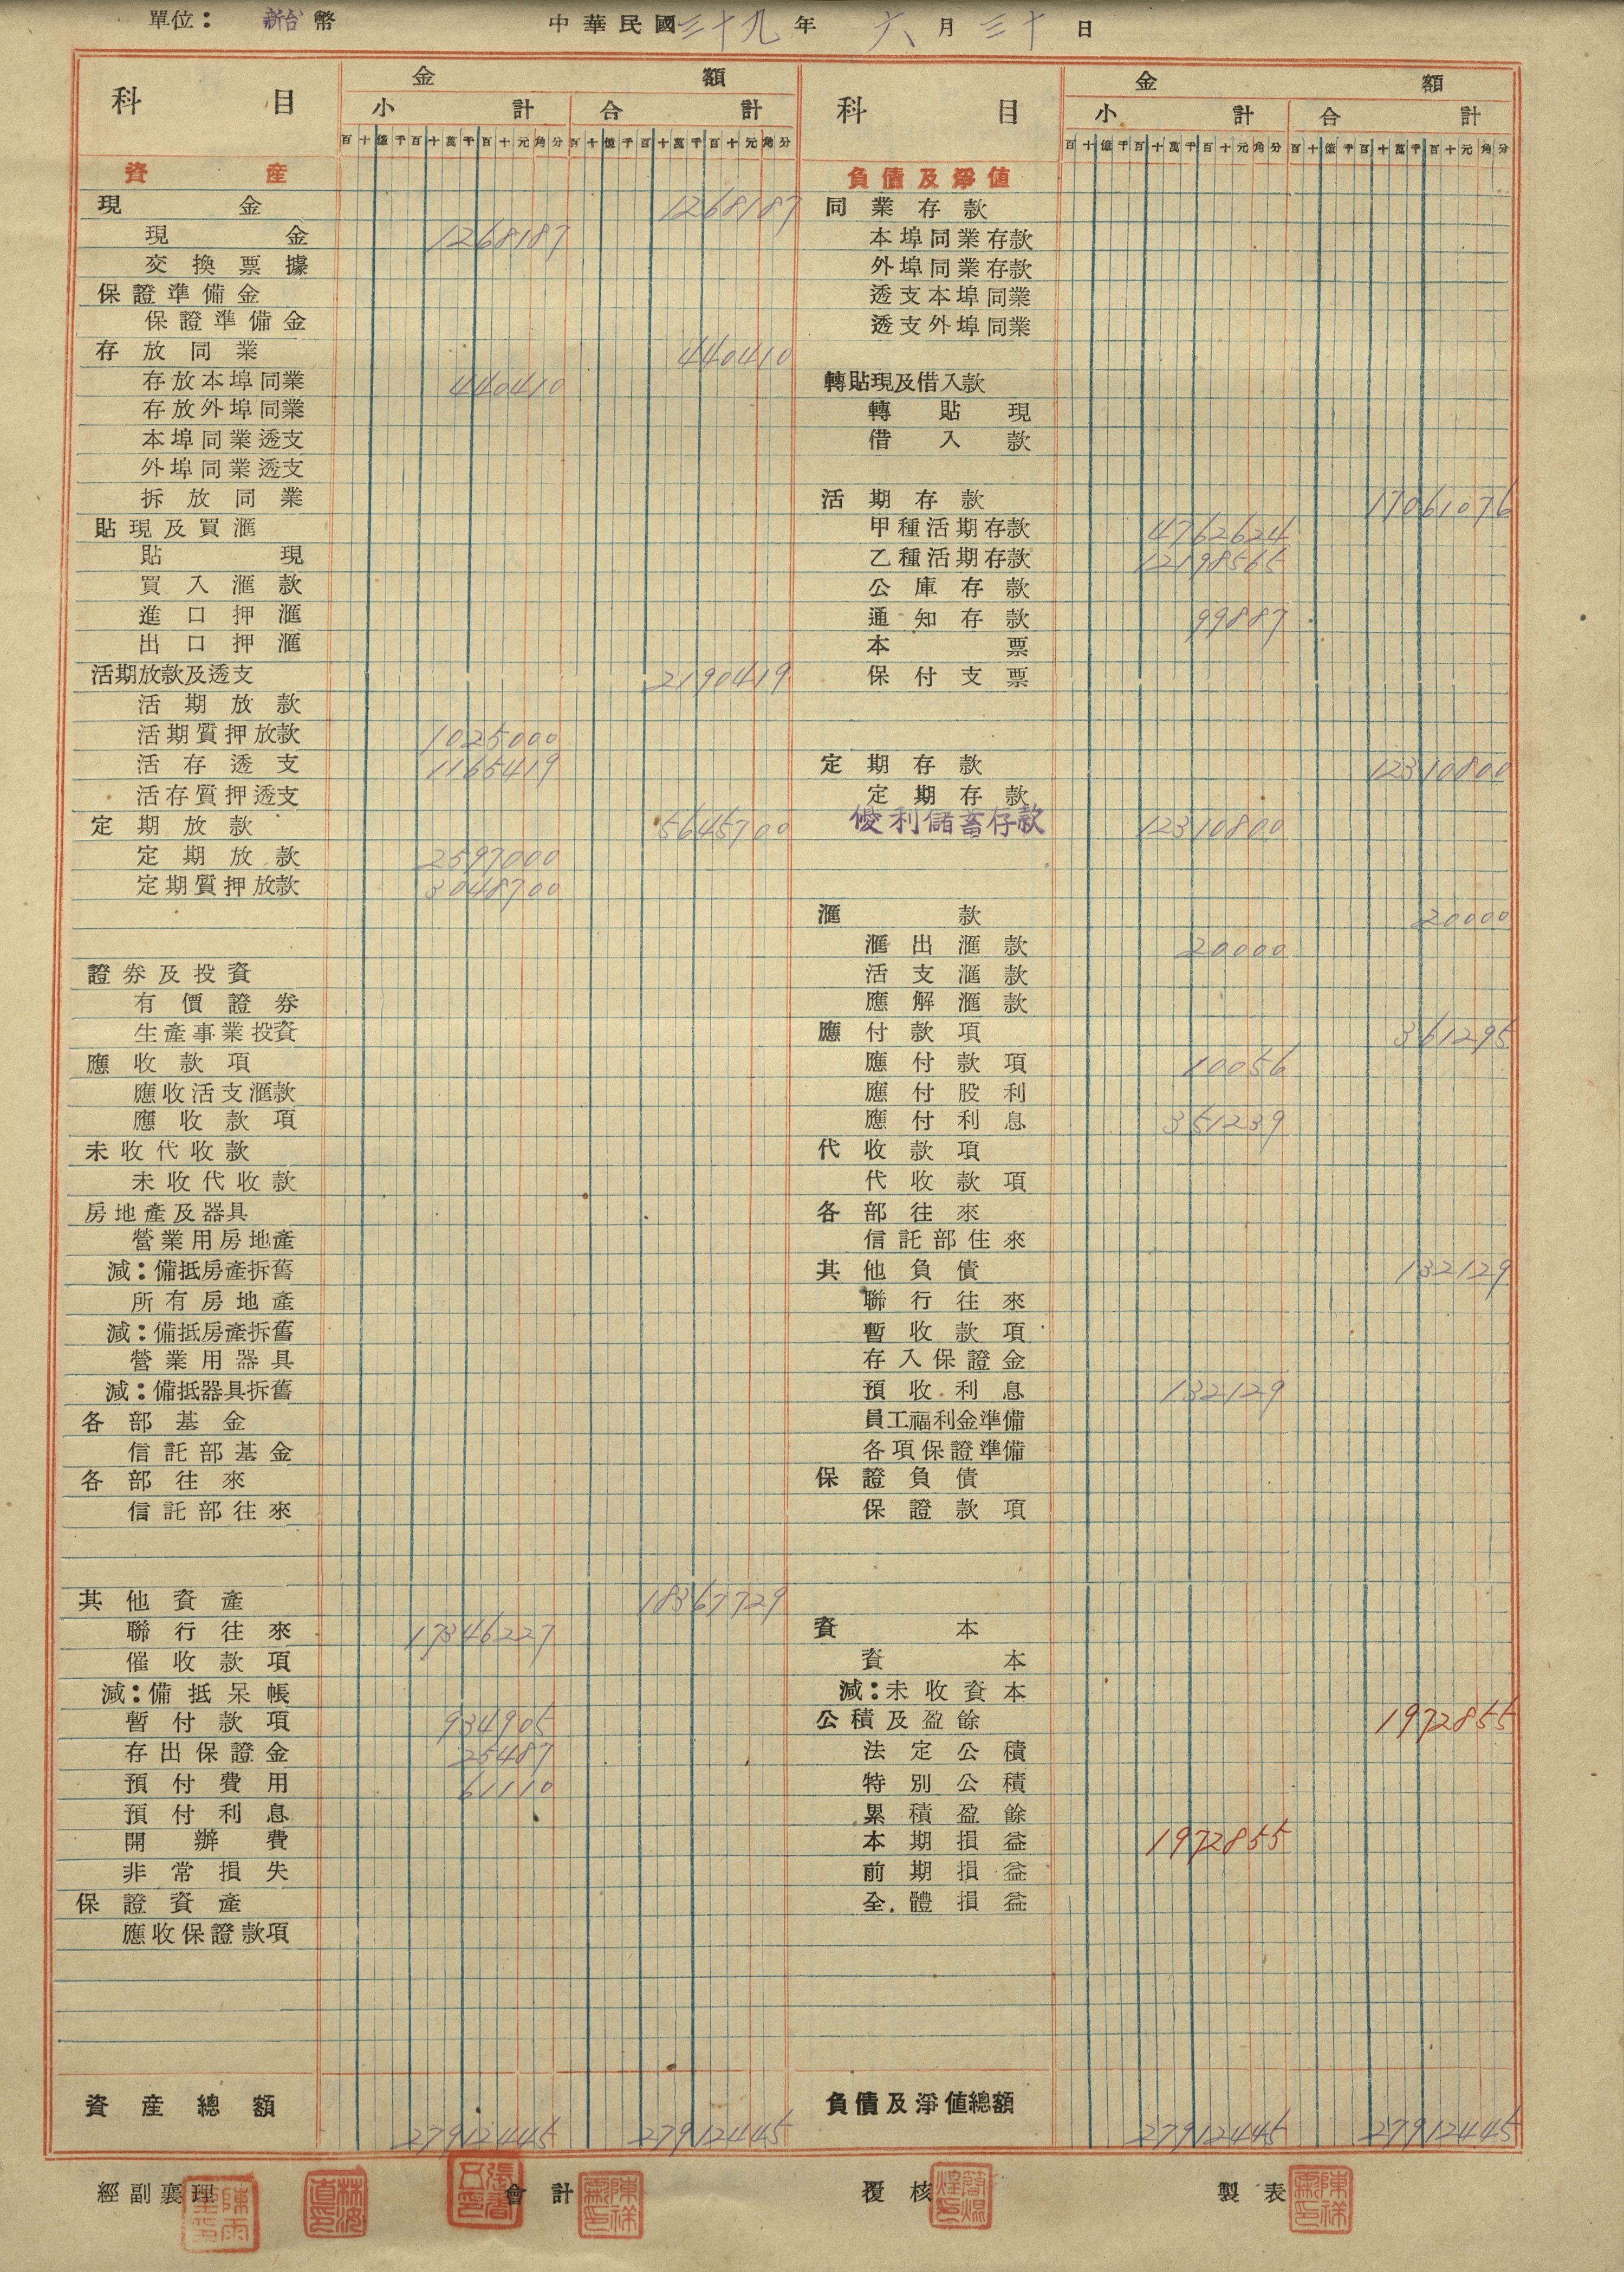 單位：新台幣 中華民國三十九年六月三十日
科目 金額 科目 金額
小計 合計 小計 合計
百十億千百十萬千百十元角分 百十億千百十萬千百十元角分 百十億千百十萬千百十元角分 百十億千百十萬千百十元角分
資產
現金 1268187
現金 1268187
交換票據
保證準備金
保證準備金
存放同業 440410
存放本埠同業 440410
存放外埠同業
本埠同業透支
外埠同業透支
拆放同業
貼現及買滙
貼現
買入滙款
進口押滙
出口押滙
活期放款及透支 2190419
活期放款
活期質押放款 1025000
活存透支 1165419
活存質押透支
定期放款 5645700
定期放款 2597000
定期質押放款 3048700
證券及投資
有價證券
生產事業投資
應收款項
應收活支滙款
應收款項
未收代收款
未收代收款
房地產及器具
營業用房地產
減：備抵房產拆舊
所有房地產
減：備抵房產拆舊
營業用器具
減：備抵器具拆舊
各部基金
信託部基金
各部往來
信託部往來
其他資產 18367729
聯行往來 17346227
催收款項
減：備抵呆帳
暫付款項 934905
存出保證金 25487
預付費用 61110
預付利息
開辦費
非常損失
保證資產
應收保證款項
資產總額 27912445 27912445
負債及淨值
同業存款
本埠同業存款
外埠同業存款
透支本埠同業
透支外埠同業
轉貼現及借入款
轉貼現
借入款
活期存款 17061076
甲種活期存款 4762624
乙種活期存款 12198565
公庫存款
通知存款 99887
本票
保付支票
定期存款 12310800
定期存款
優利儲蓄存款 12310800
滙款 20000
滙出滙款 20000
活支滙款
應解滙款
應付款項 361295
應付款項 10056
應付股利
應付利息 351239
代收款項
代收款項
各部往來
信託部住來
其他負債 132129
聯行往來
暫收款項
存入保證金
預收利息 132129
員工福利金準備
各項保證準備
保證負債
保證款項
資本
資本
減：未收資本
公積及盈餘 1972855
法定公積
特別公積
累積盈餘
本期損益 1972855
前期損益
全體損益
負債及淨值總額 27912445 27912445
經副襄理 會計 覆核 製表